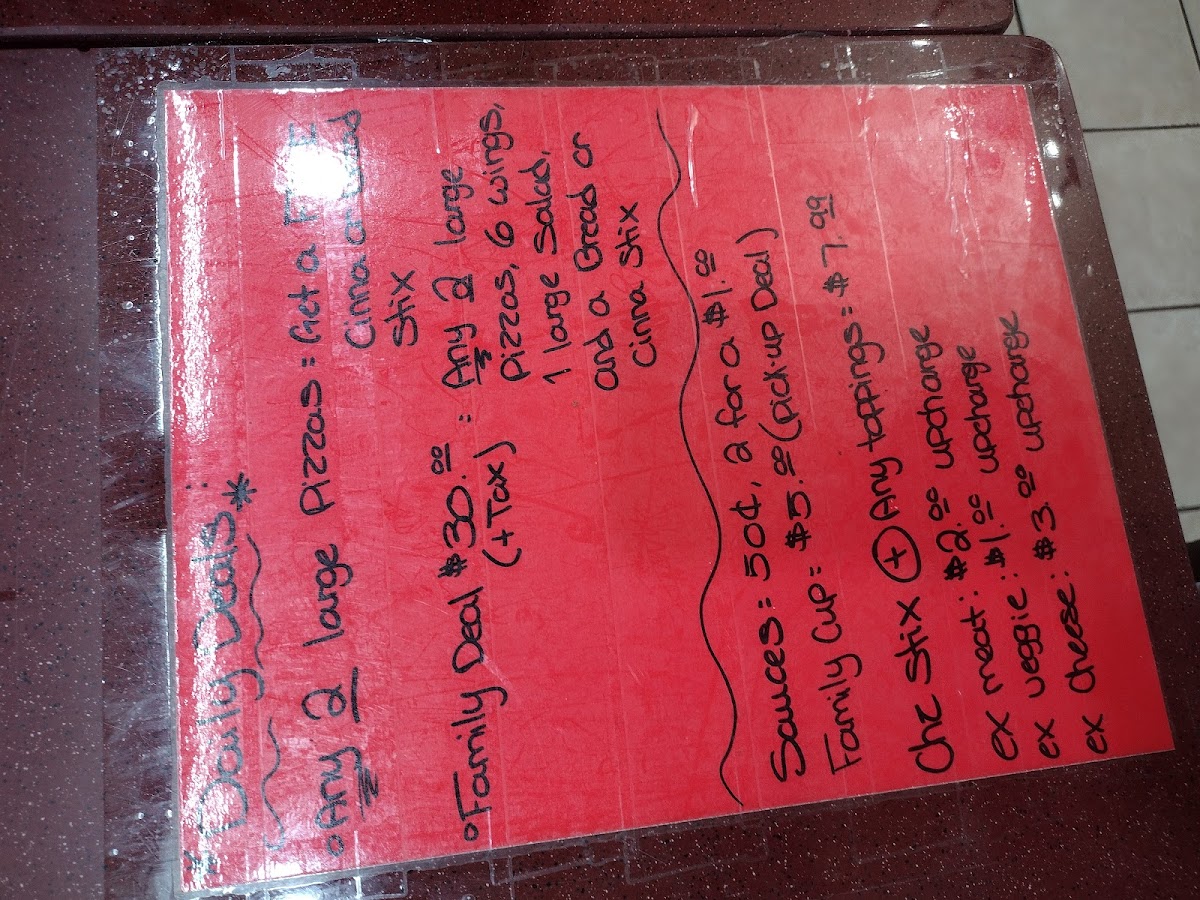 * Daily Deals: *
° Any 2 large pizzas = Get a FREE
Cinna or Bread
Stix
° Family Deal $30.00 : Any 2 large
(+Tax) pizzas, 6 wings,
1 large Salad,
and a Bread or
Cinna Stix
Sauces = 50¢, 2 for a $1.00
Family Cup = $5.00 (pick-up Deal)
Chz Stix + Any toppings = $7.99
ex meat : $2.00 upcharge
ex veggie : $1.00 upcharge
ex cheese : $3.00 upcharge